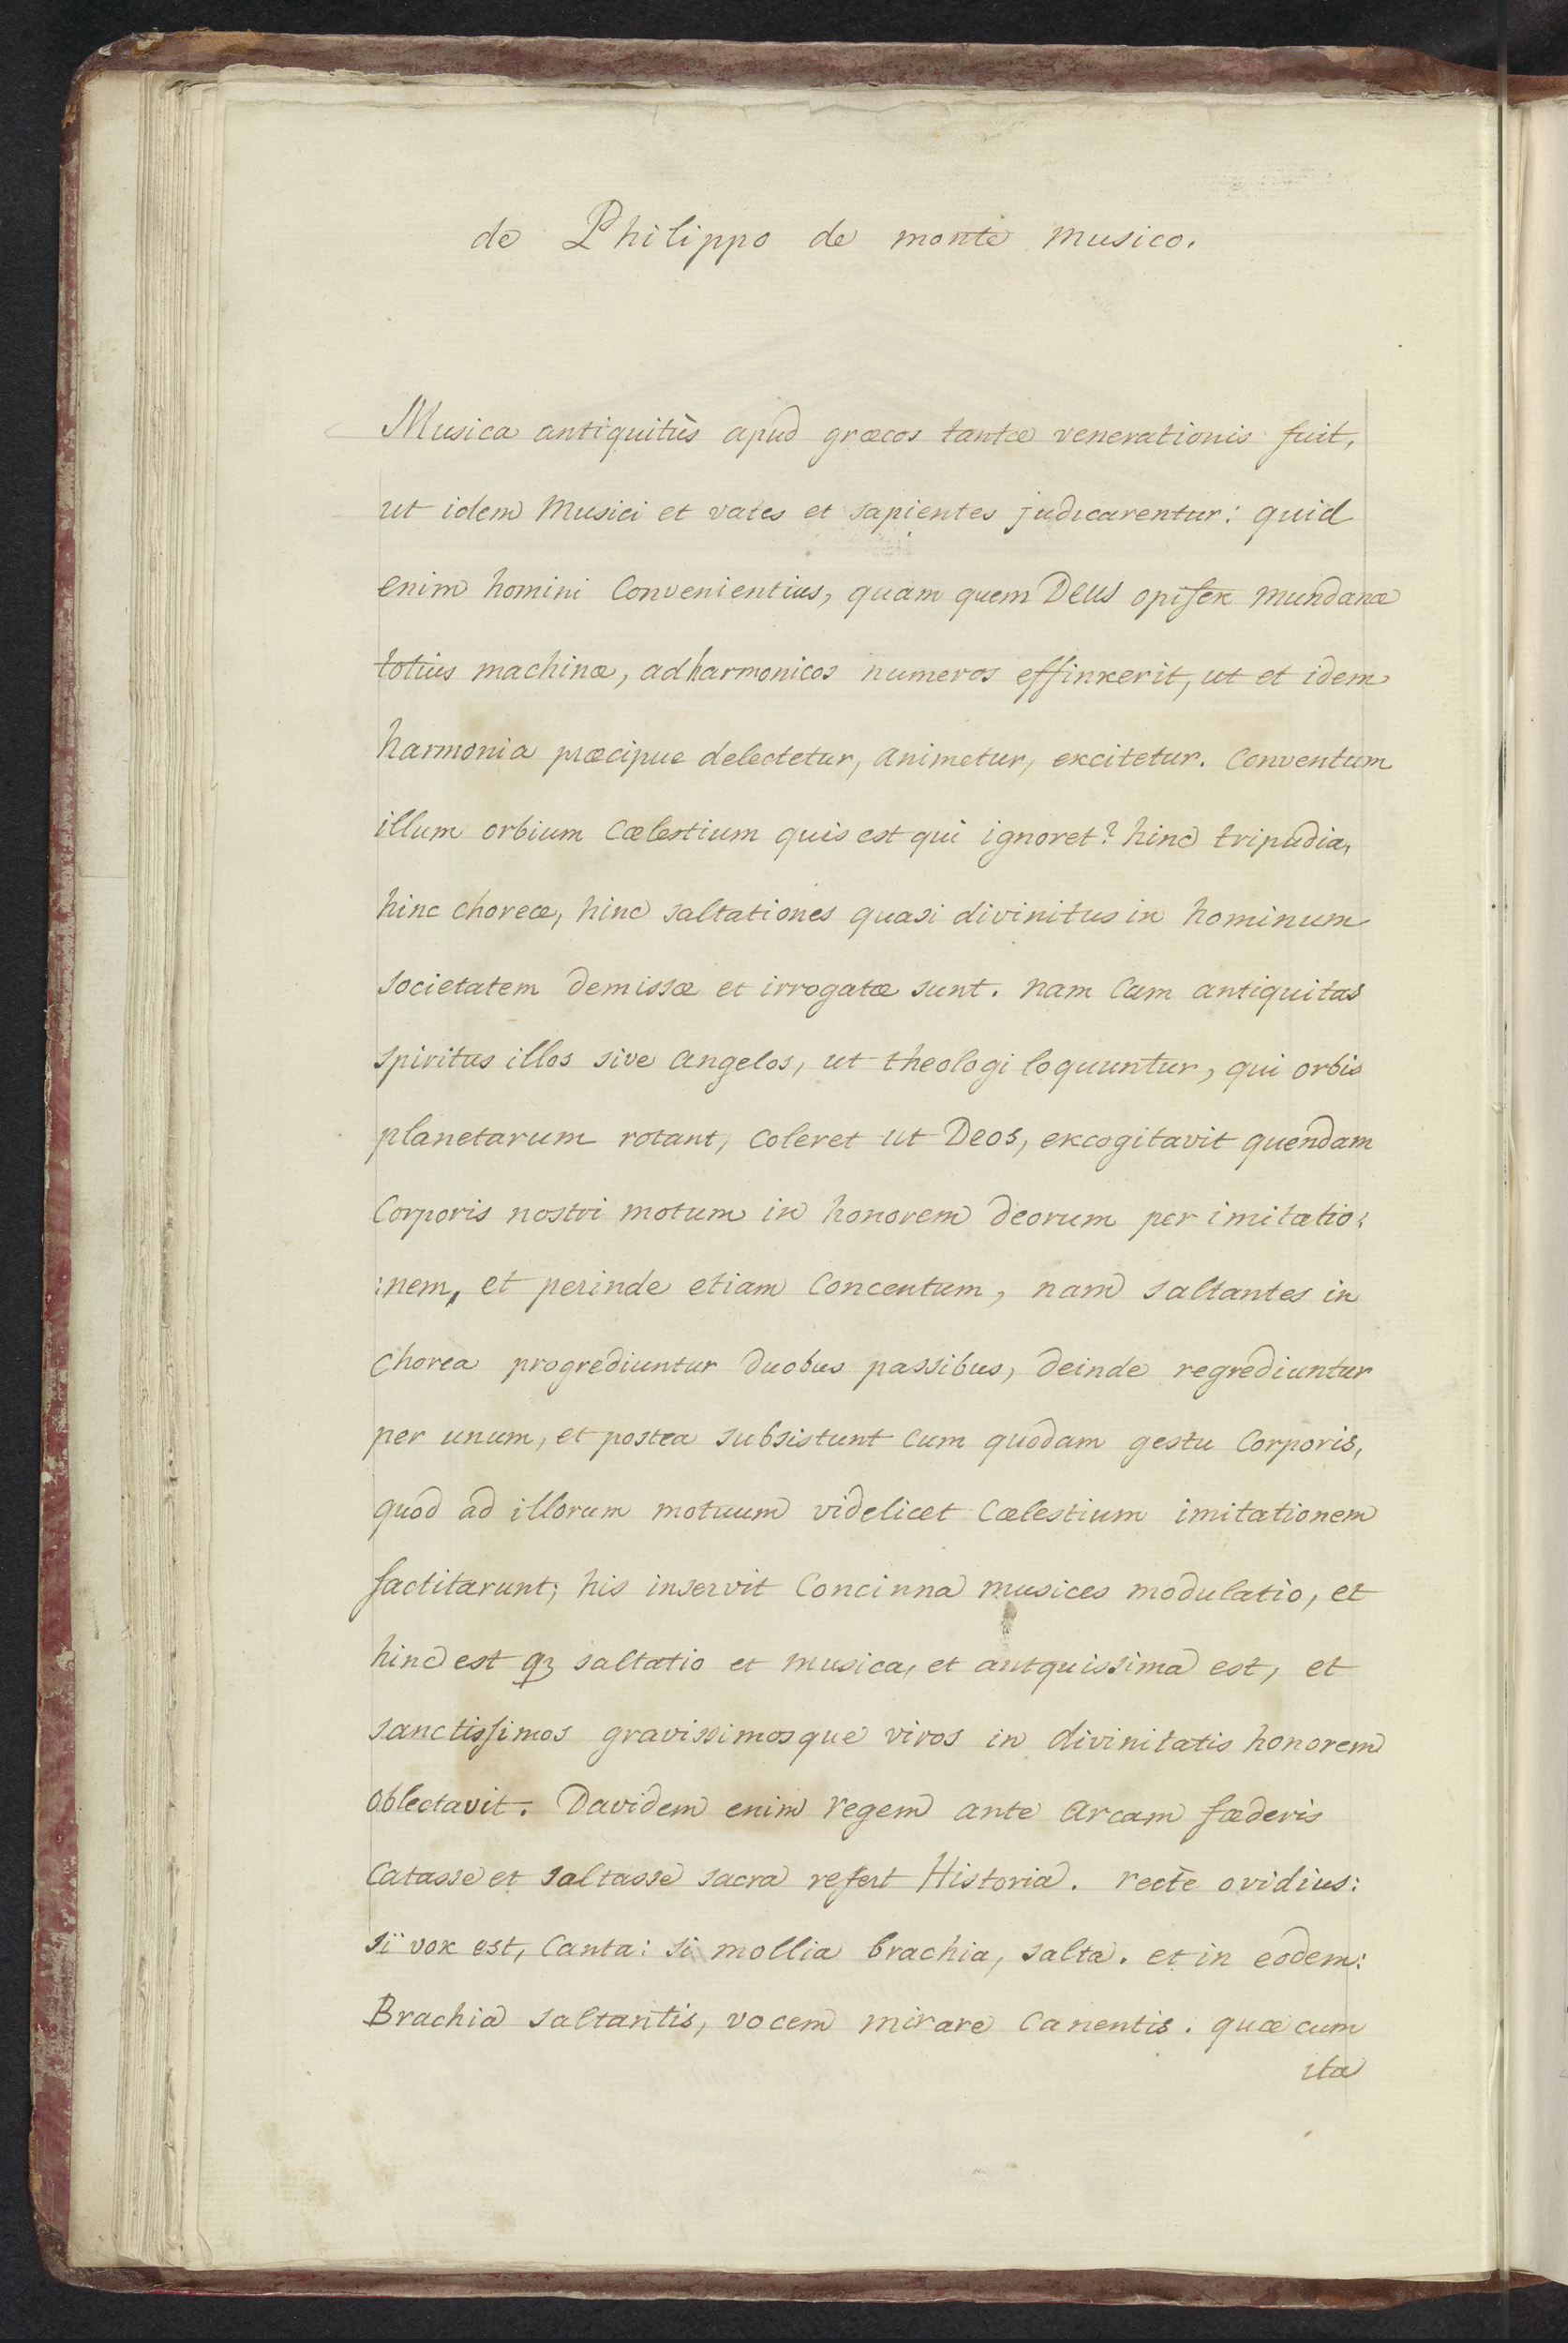 de Philippo de monte musico.
Musica antiquitùs apud græcos tantæ venerationis fuit,
ut idem Musici et vates et sapientes judicarentur: quid
enim homini Convenientius, quam quem Deus opifex mundanæ
totius machinæ, ad harmonicos numeros effinxerit, ut et idem
harmonia præcipue delectetur, animetur, excitetur. Conventum
illum orbium Cælestium quis est qui ignoret? hinc tripudia,
hinc choreæ, hinc saltationes quasi divinitus in hominum
societatem demissæ et irrogatæ sunt. nam Cum antiquitas
spiritus illos sive angelos, ut theologi loquuntur, qui orbis
planetarum rotant, coleret ut Deos, excogitavit quendam
Corporis nostri motum in honorem deorum per imitatio:
:nem, et perinde etiam Concentum, nam saltantes in
chorea progrediuntur duobus passibus, deinde regrediuntur
per unum, et postea subsistunt cum quodam gestu Corporis,
quod ad illorum motuum videlicet Cælestium imitationem
factitarunt; his inservit Concinna musices modulatio, et
hinc est qꝫ saltatio et musica, et antquissima est, et
sanctissimos gravissimosque viros in divinitatis honorem
oblectavit. Davidem enim regem ante arcam fæderis
Catasse et saltasse sacra refert Historia. rectè ovidius:
sï vox est, Canta: si mollia brachia, salta. et in eodem:
Brachia saltantis, vocem mirare Canentis. quæ cum
ita